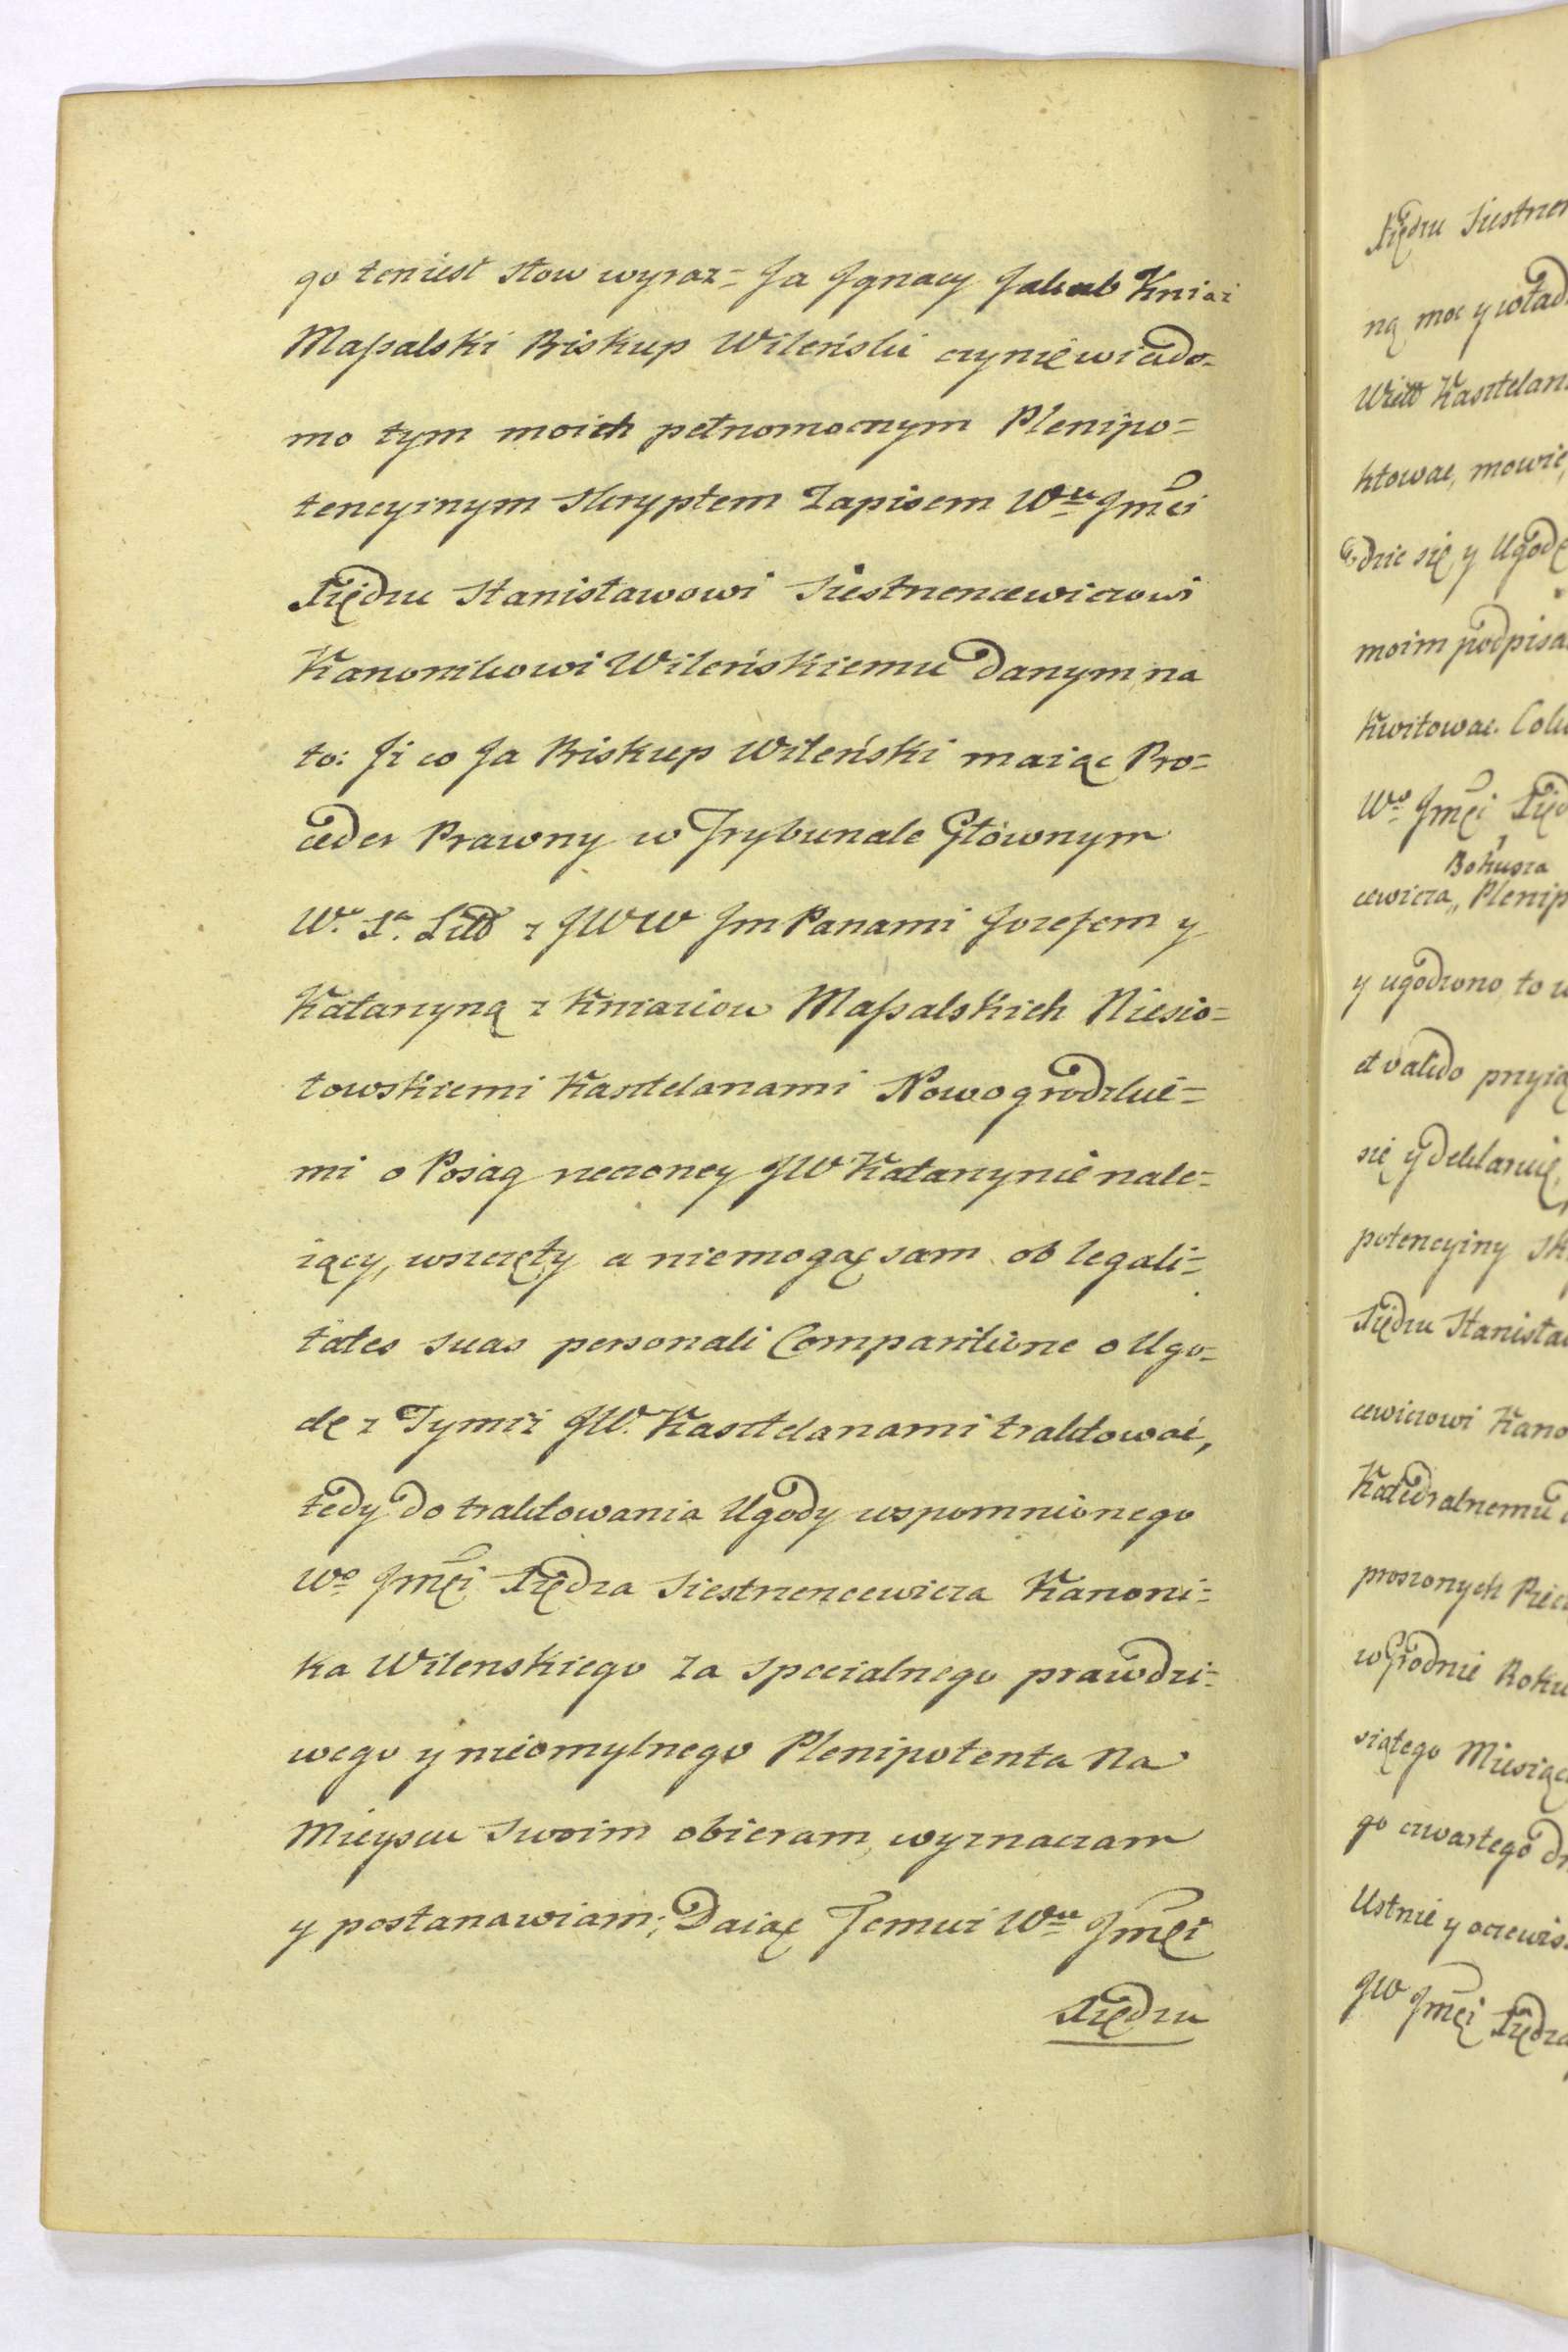 go teniest słow wyraz= Ja Jgnacy Jakub Kniaź
Massalski Biskup Wileński czynię wiado-
mo tym moich pełnomocnym Plenipo=
tencyinym Skryptem Zapisem Wu Jmći
Xiędzu Stanisławowi Siestrzencewiczowi
Kanonikowi Wileńskiemu Danym, na
to: Ji co Ja Biskup Wileński maiąc Pro=
ceder Prawny w Trybunale Głównym
W. X. Litt z JWW Jm Panami Jozefem y
Katarzyną z Kniaziow Massalskich Niesio=
łowskiemi Kasztelanami Nowogrodzkie=
mi o Posag rzeczoney JW Katarzynie nale=
żący, wszczęty a niemogąc sam ob legali=
tates suas personali Comparitione o Ugo-
dę z Tymiż JW. Kasztelanami traktować,
tedy do traktowania Ugody wspomnionego
Wo Jmći Xiędza Siestrzencewicza Kanoni=
ka Wilenskiego za specialnego prawdzi=
wego y nieomylnego Plenipotenta Na
Mieyscu swoim obieram, wyznaczam
y postanawiam; Daiąc Temuż Wu Jmći
Xiędzu
Xiędzu Siestrzen
ną moc y wład
Kasztelan
ktować, mowić,
y Ugodę
moim podpisa
Kwitować.
Wo Jmći Xięd
Bohusza
cewicza,, Plenip
y ugodzono, to w
et valido przyią
się y deklaruię,
potencyiny Sk
Xiędzu Stanisła
cewiczowi Kano
Katedralnemu
proszonych Piecz
w Grodnie Roku
siątego Miesiąc
go czwartego dn
Ustnie y oczewis
JW Jmći Xiędza